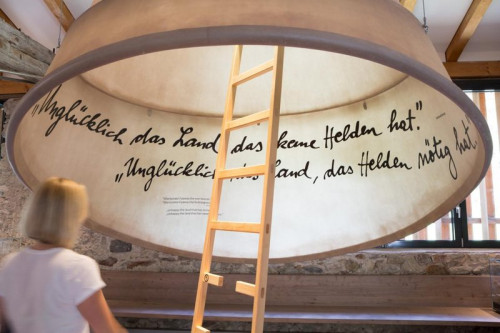 „Unglücklich das Land, das keine Helden hat.“
„Unglücklich das Land, das Helden nötig hat.“